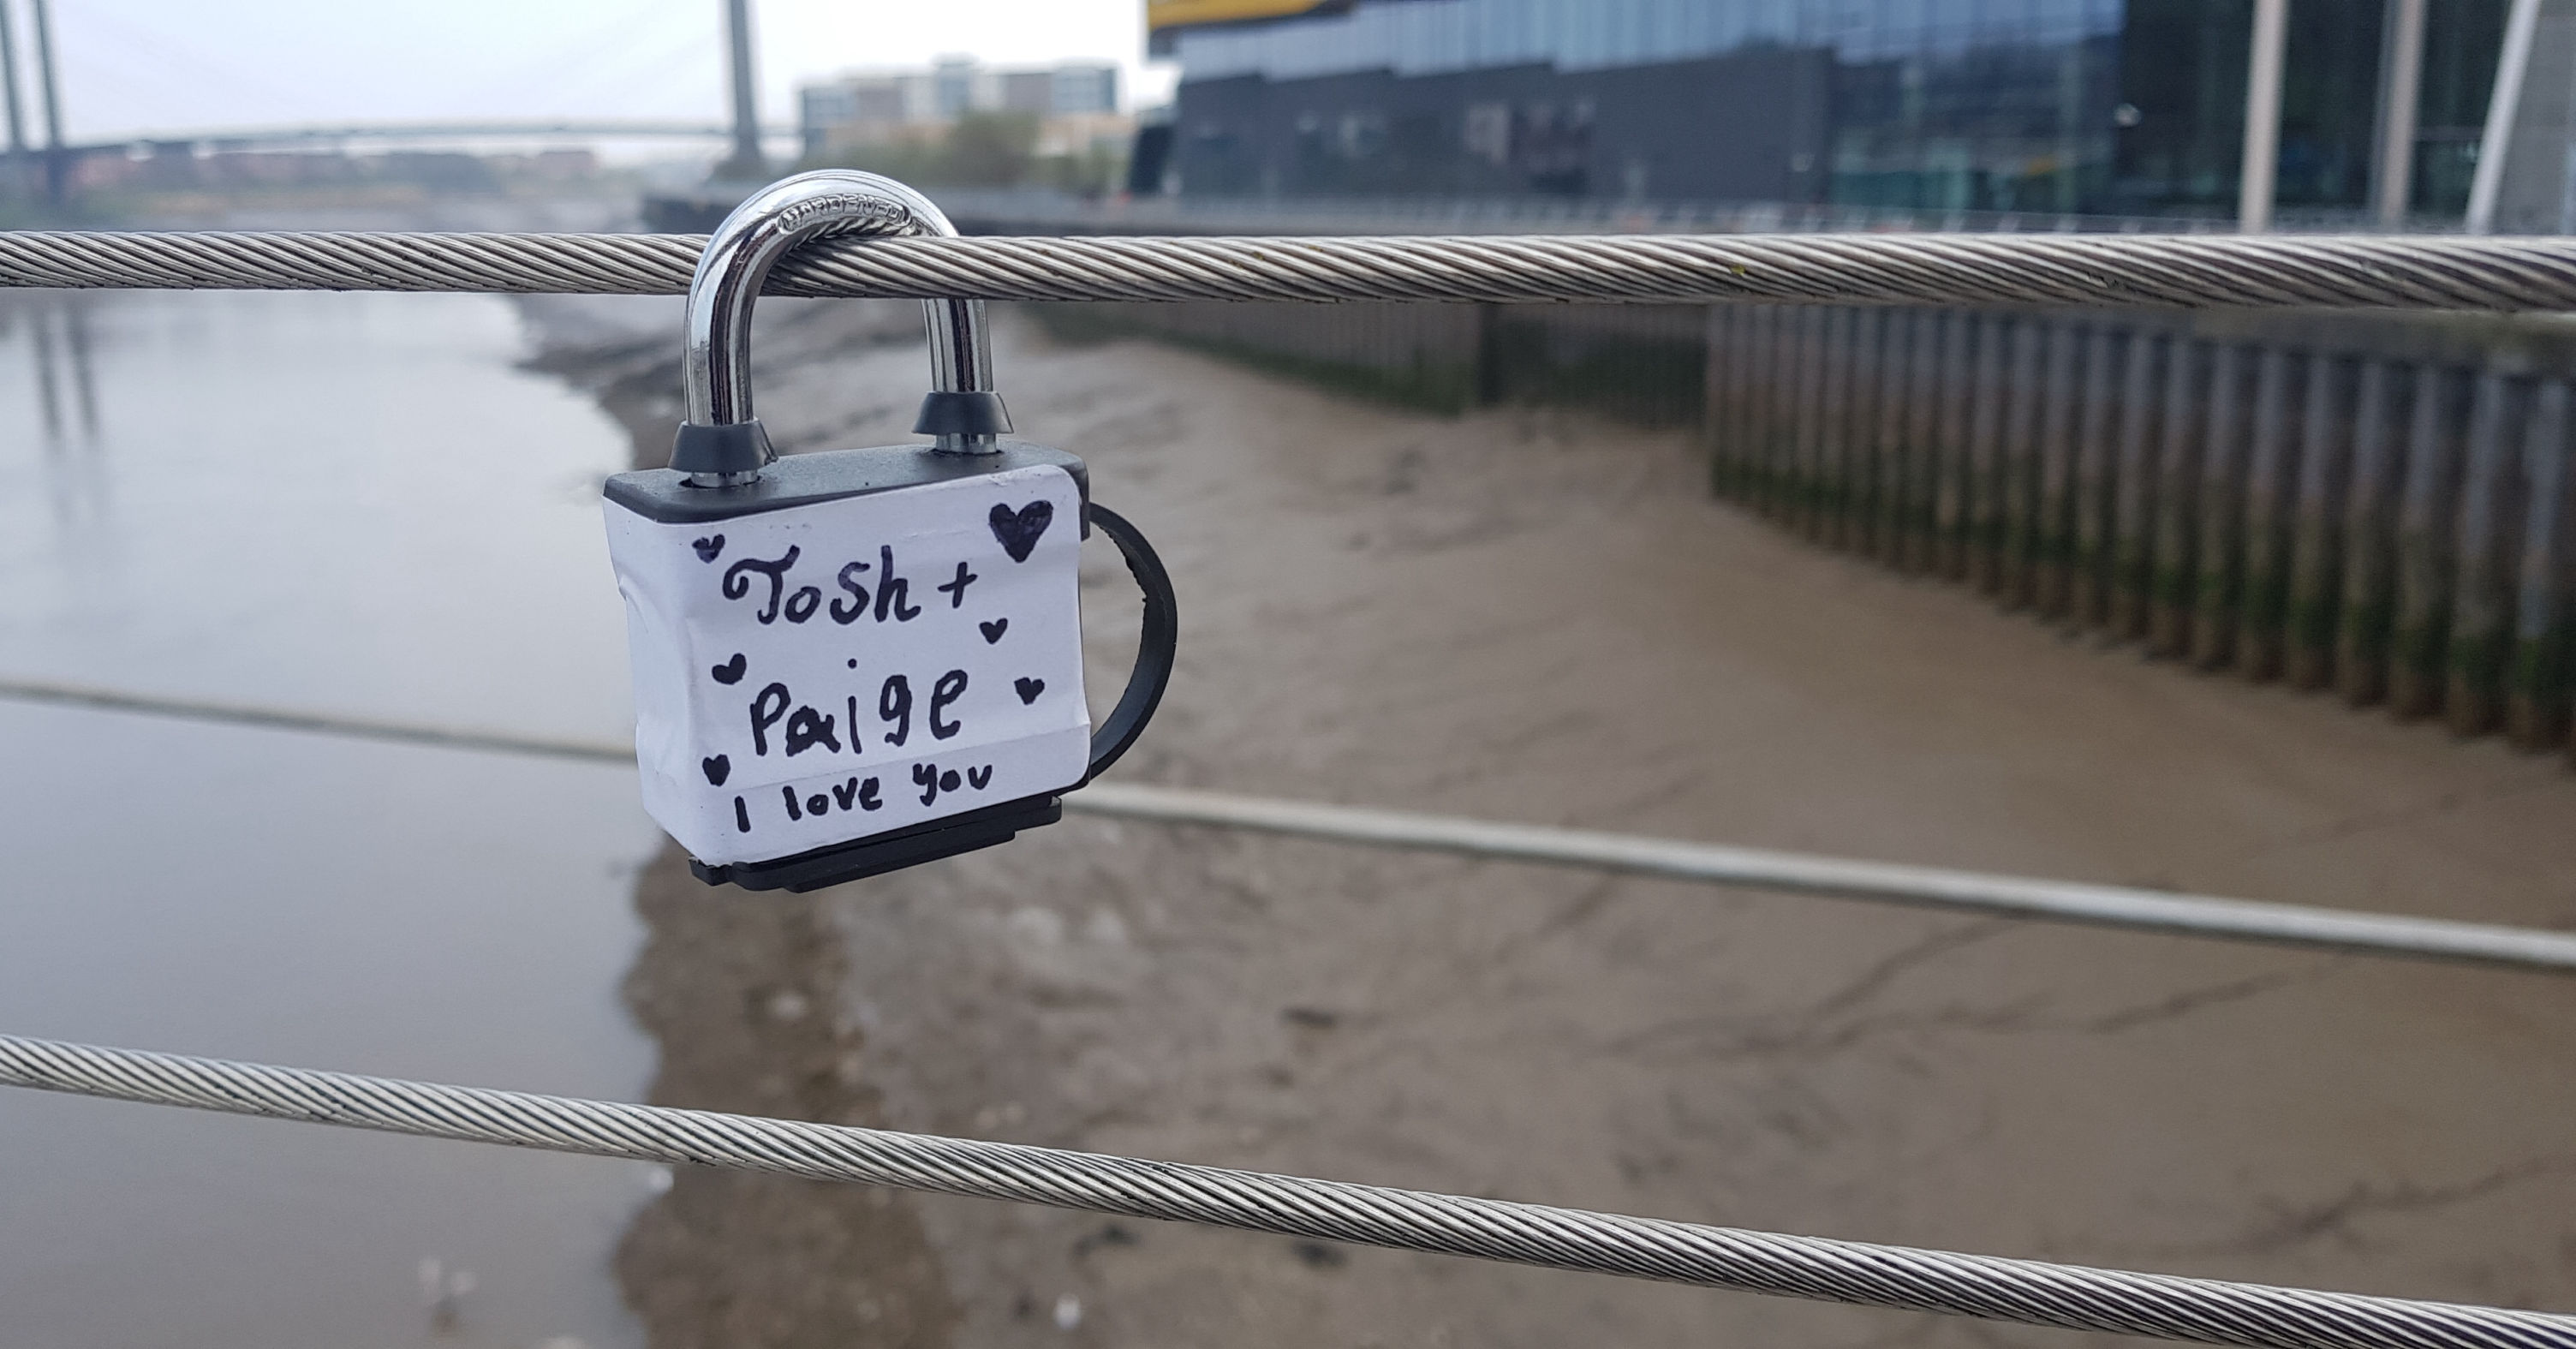 HARDENED
Tosh +
Paige
I love you